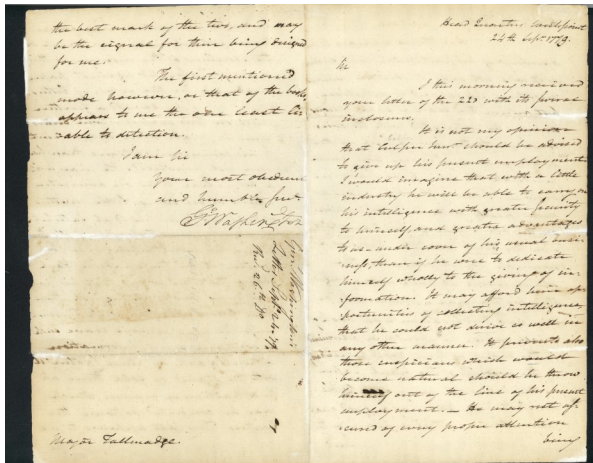 the best mark of the two, and may
be the signal for their being designed
for me.
The first mentioned
mode however, or that of the books
appears to me the one least li-
able to detection.
I am Sir
Your most obedient
and humble Servt
Go Washington
Genl Washington's
Letter Sept 24. 79
Recd 26th Do
Major Tallmadge.
Head Quarters Westpoint
24th Sepr 1779.
Sir
I this morning received
your letter of the 22d with its
inclosures.
It is not my opinion
that Culper Junr should be advised
to give up his present employment.
I would imagine that with a little
industry he will be able to carry on
his intelligence with greater security
to himself and greater advantages
to us under cover of his usual busi-
ness, than if he were to dedicate
himself wholly to the giving of in-
formation. It may afford him op-
portunities of collecting intelligence,
that he could not derive so well in
any other manner. It prevents also
those suspicions which would
become natural should he throw
himself out of the line of his present
employment. — He may rest as-
sured of every proper attention
being